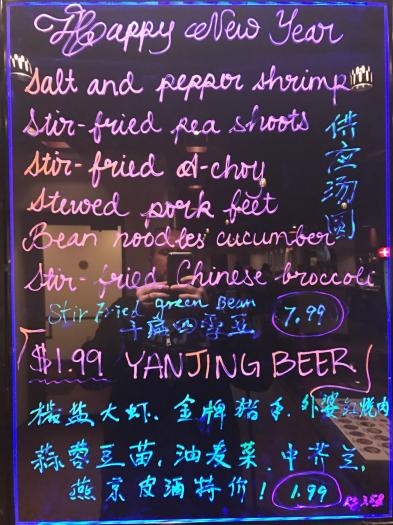 Happy New Year
Salt and pepper shrimp
Stir-fried pea shoots
Stir-fried A-choy
Stewed pork feet
Bean noodles cucumber
Stir-fried Chinese broccoli
供应汤圆
Stir Fried green Bean
干煸四季豆 7.99
$1.99 YANJING BEER
椒盐大虾、金牌猪手、外婆红烧肉
蒜蓉豆苗,油麦菜、中芥兰
燕京皮酒特价! 1.99